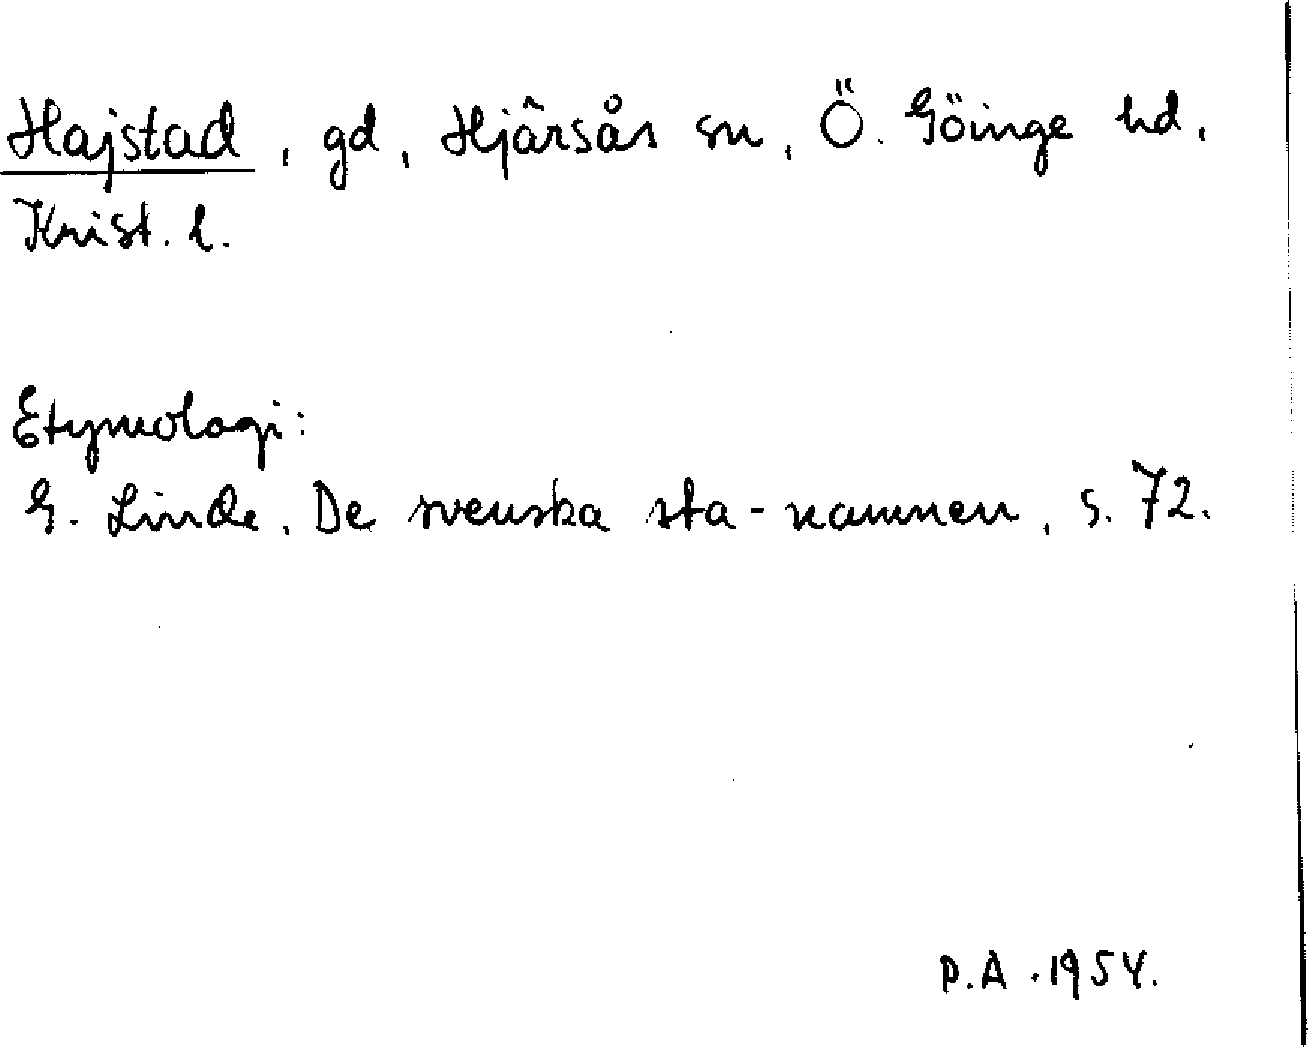 Hajstad, gd, Hjärsås sn, Ö. Göinge hd,
Krist. l.
Etymologi:
G. Linde, De svenska sta-namnen, s. 72.
P.A. 1954.